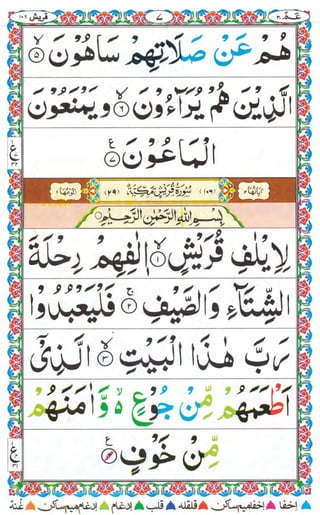 عمّ ٣٠ ٧ قريش ١٠٦
هُمْ عَنْ صَلَاتِهِمْ سَاهُوْنَ ۙ﴿۵﴾
الَّذِيْنَ هُمْ يُرَآءُوْنَ ۙ﴿۶﴾ وَيَمْنَعُوْنَ
الْمَاعُوْنَ ۧ﴿۷﴾
سُوْرَةُ قُرَيْشٍ مَكِّيَّةٌ
بِسْمِ اللّٰهِ الرَّحْمٰنِ الرَّحِيْمِ
لِاِيْلٰفِ قُرَيْشٍ ۙ﴿۱﴾ اٖلٰفِهِمْ رِحْلَةَ
الشِّتَآءِ وَالصَّيْفِ ۚ﴿۲﴾ فَلْيَعْبُدُوْا
رَبَّ هٰذَا الْبَيْتِ ۙ﴿۳﴾ الَّذِيْٓ
اَطْعَمَهُمْ مِّنْ جُوْعٍ ۙ۬ وَّاٰمَنَهُمْ
مِّنْ خَوْفٍ ۧ﴿۴﴾
اخفا اخفا ميم ساكن قلقله قلب ادغام ادغام ميم ساكن غنه